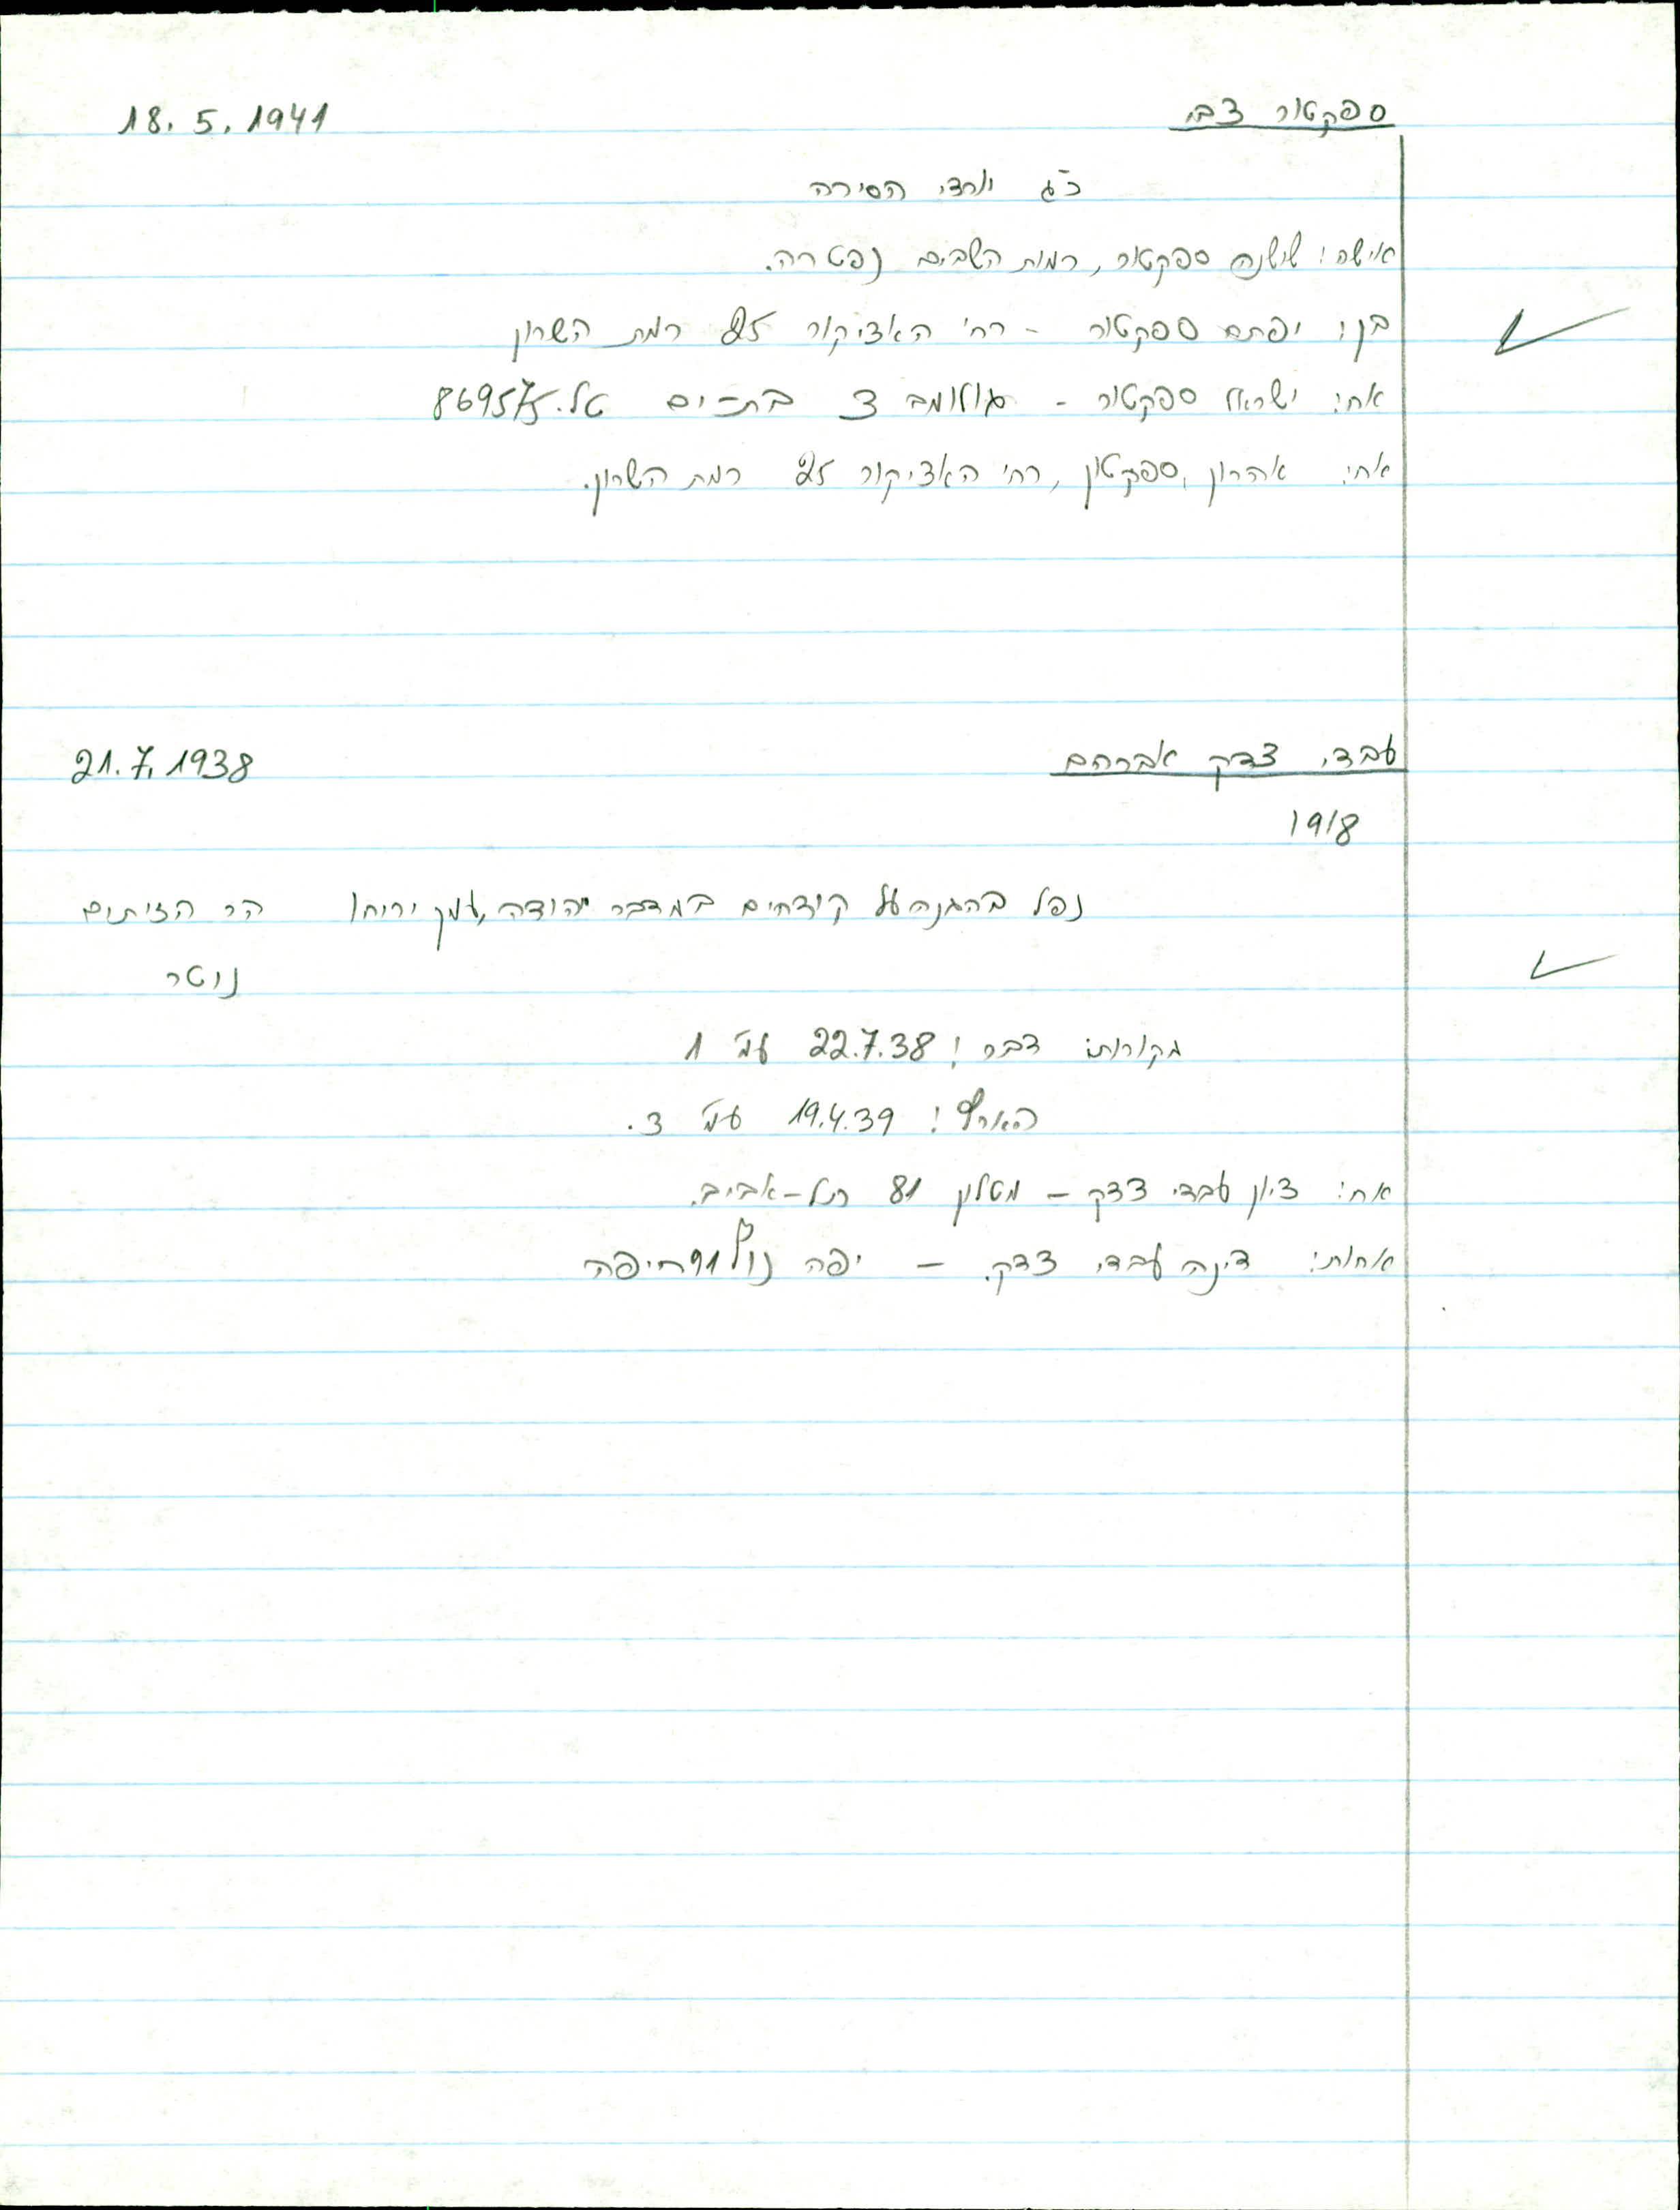 ספקטור צבי 18.5.1941
כ"ג יורדי הסירה
אישה: שושנה ספקטור, רמות השבים נפטרה.
בן: יפתח ספקטור - רח' האציקור 25 רמת השרון
אח: ישראל ספקטור - גולומב 3 בת-ים טל. 869575
אח: אהרון ספקטור, רח' האציקור 25 רמת השרון.
עבדי צדק אברהם 21.7.1938
1918
נפל בהגנה על קודחים במדבר יהודה, עמק יריחו הר הזיתים
נוטר
מקורות: דבר: 22.7.38 עמ' 1
הארץ: 19.4.39 עמ' 3.
אח: ציון עבדי צדק - מטלון 81 תל-אביב.
אחות: דינה עבדי צדק. - יפה נוף 91 חיפה